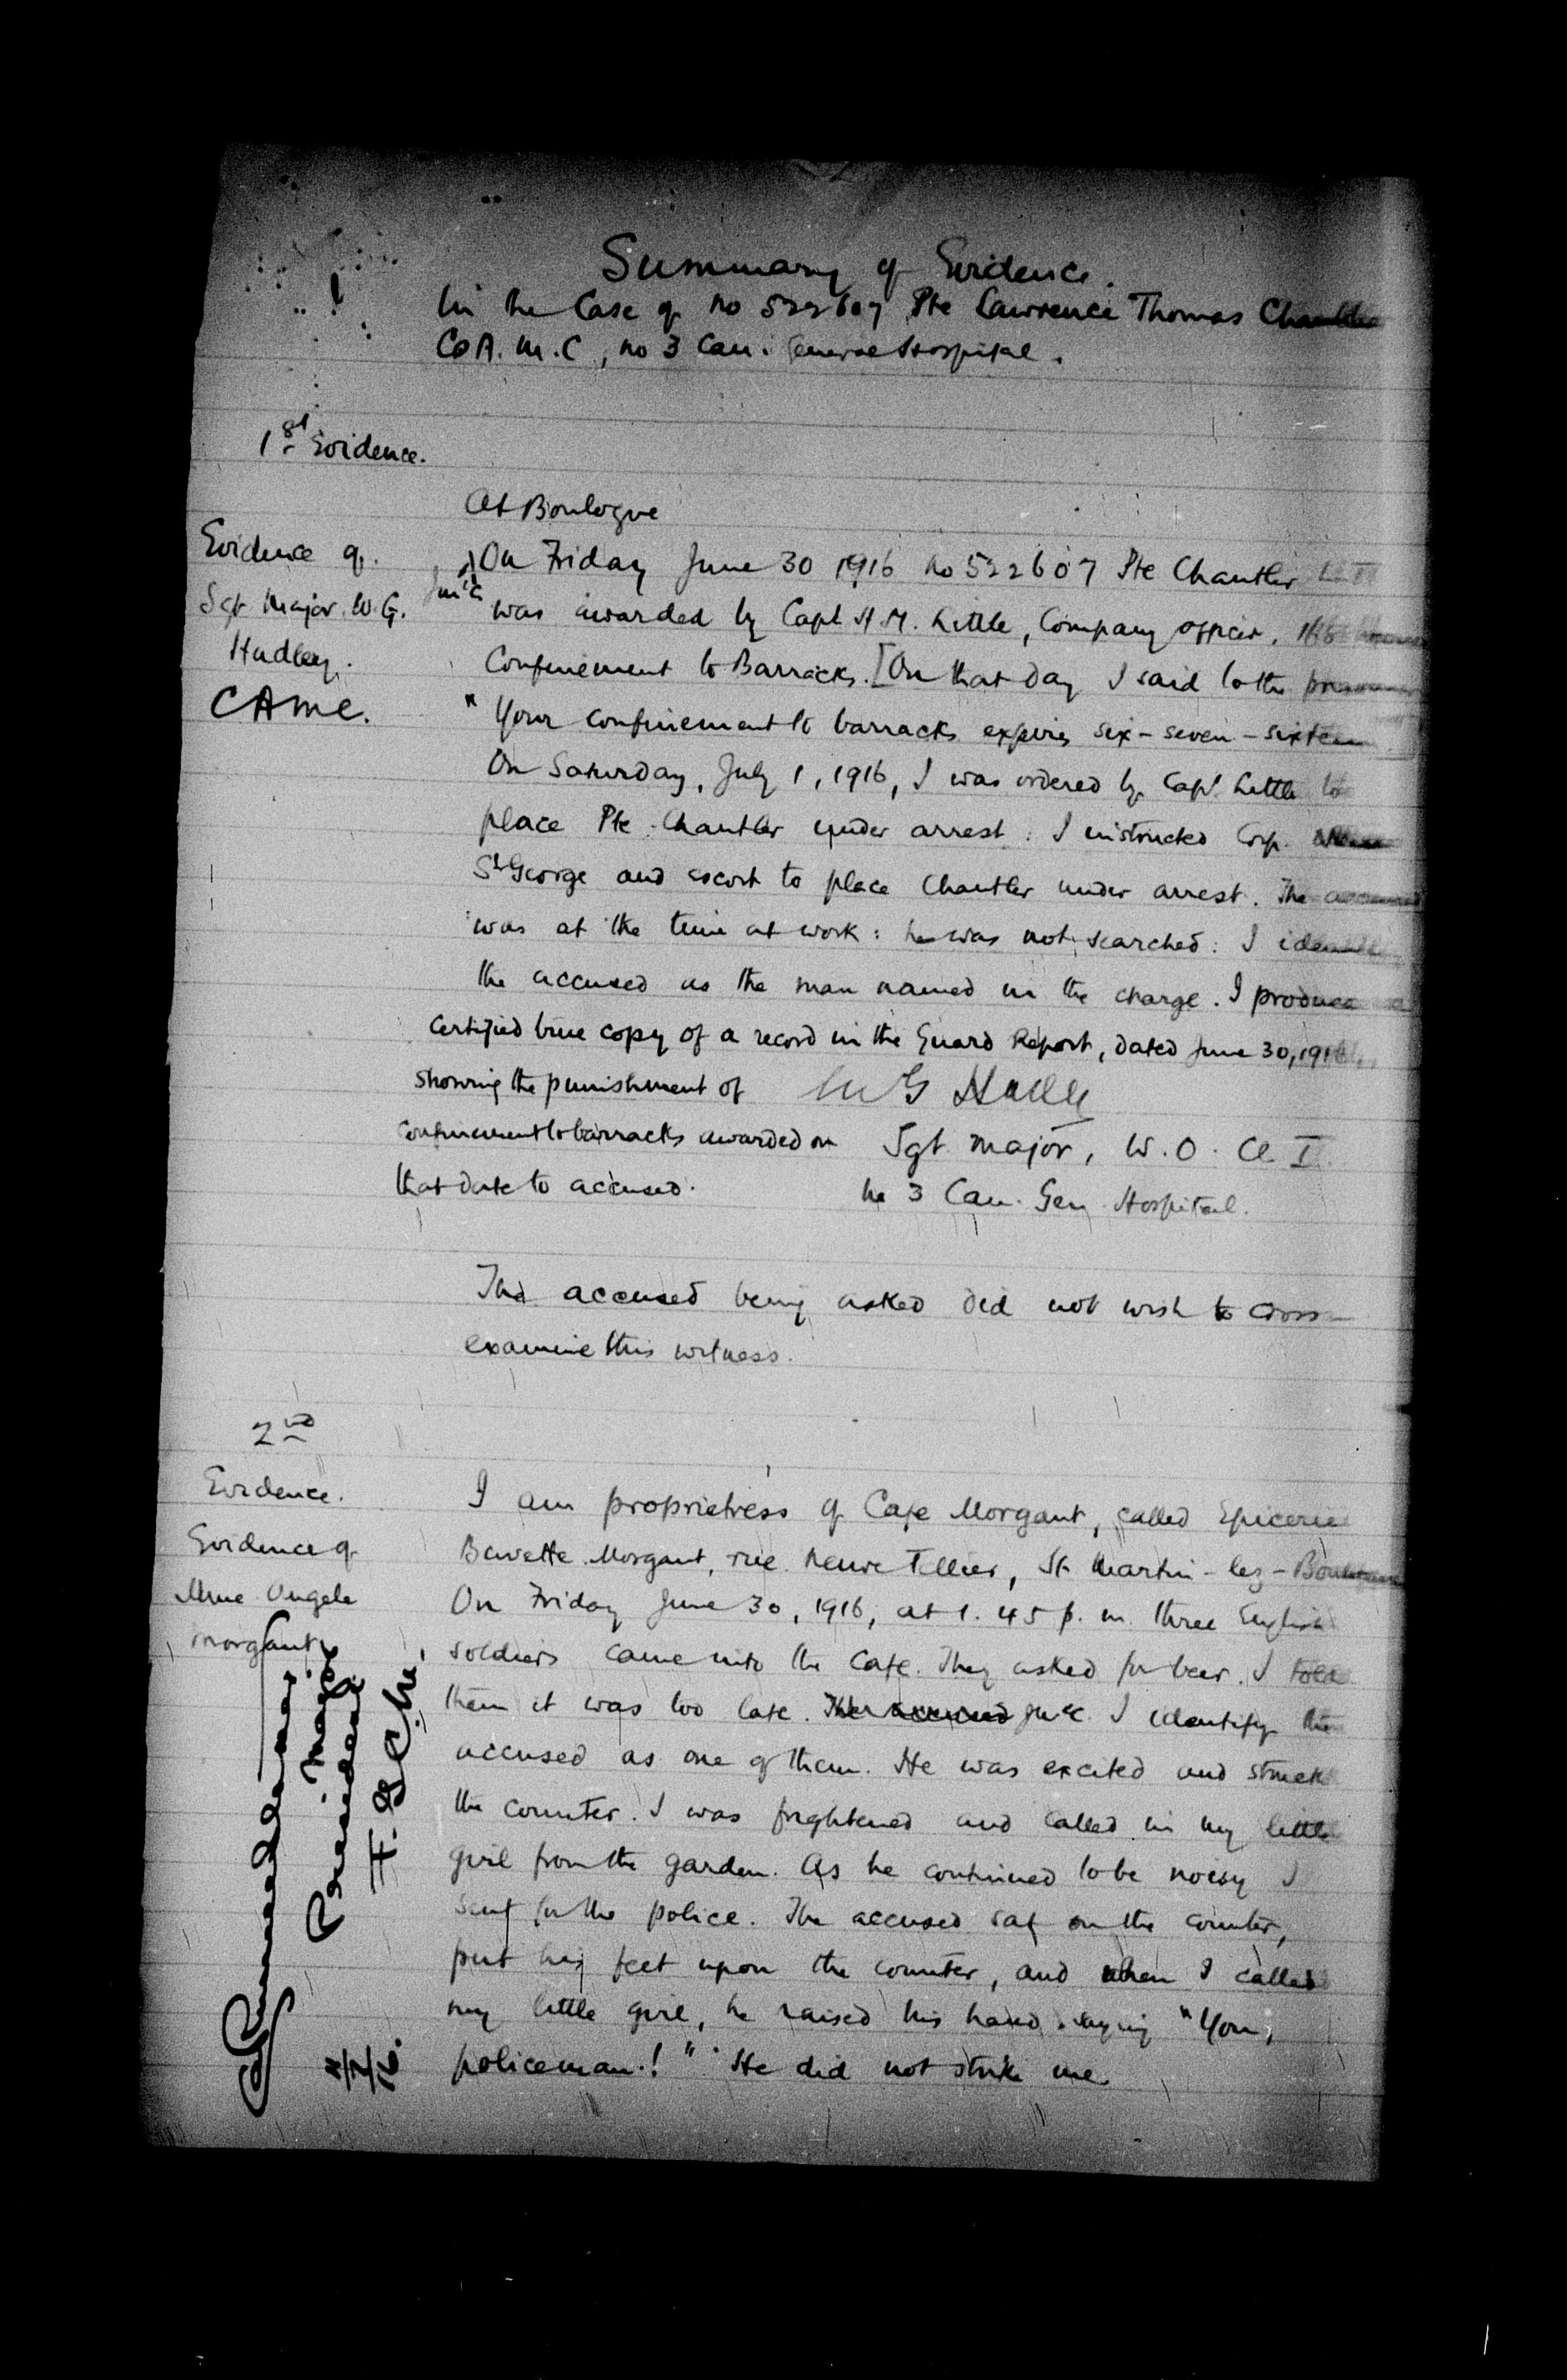 Summary of Evidence.
In the Case of No 522607 Pte Lawrence Thomas Chantler
C.A.M.C, No 3 Can. General Hospital.
1st Evidence.
At Boulogne
Evidence of
Sgt Major W.G.
Hadley.
CAMC.
On Friday June 30 1916 No 522607 Pte Chantler L.T
was awarded by Capt H.M. Little, Company Officer, 168 hours
Confinement to Barracks. [On that day I said to the prisoner
"Your confinement to barracks expires six-seven-sixteen
On Saturday, July 1, 1916, I was ordered by Capt Little to
place Pte Chantler under arrest. I instructed Corp.
St George and escort to place Chantler under arrest. The accused
was at the time at work: he was not searched: I identify
the accused as the man named in the charge. I produce a
certified true copy of a record in the Guard Report, dated June 30, 1916,
showing the punishment of
confinement to barracks awarded on
that date to accused.
Sgt Major, W.O. Cl II
No 3 Can. Gen. Hospital.
The accused being asked did not wish to cross
examine this witness.
2nd
Evidence.
Evidence of
Mme Angele
Morgant
I am proprietress of Cafe Morgant, called Epicerie
Buvette Morgant, rue Neuve Tellier, St Martin-lez-Boulogne
On Friday June 30, 1916, at 1.45 p.m. three English
soldiers came into the Cafe. They asked for beer. I told
them it was too late. The accused I identify the
accused as one of them. He was excited and struck
the counter. I was frightened and called in my little
girl from the garden. As he continued to be noisy I
sent for the police. The accused sat on the counter,
put his feet upon the counter, and when I called
my little girl, he raised his hand saying "You,
policeman!" He did not strike me.
Major
President
F.G.C.M.
4/7/16.